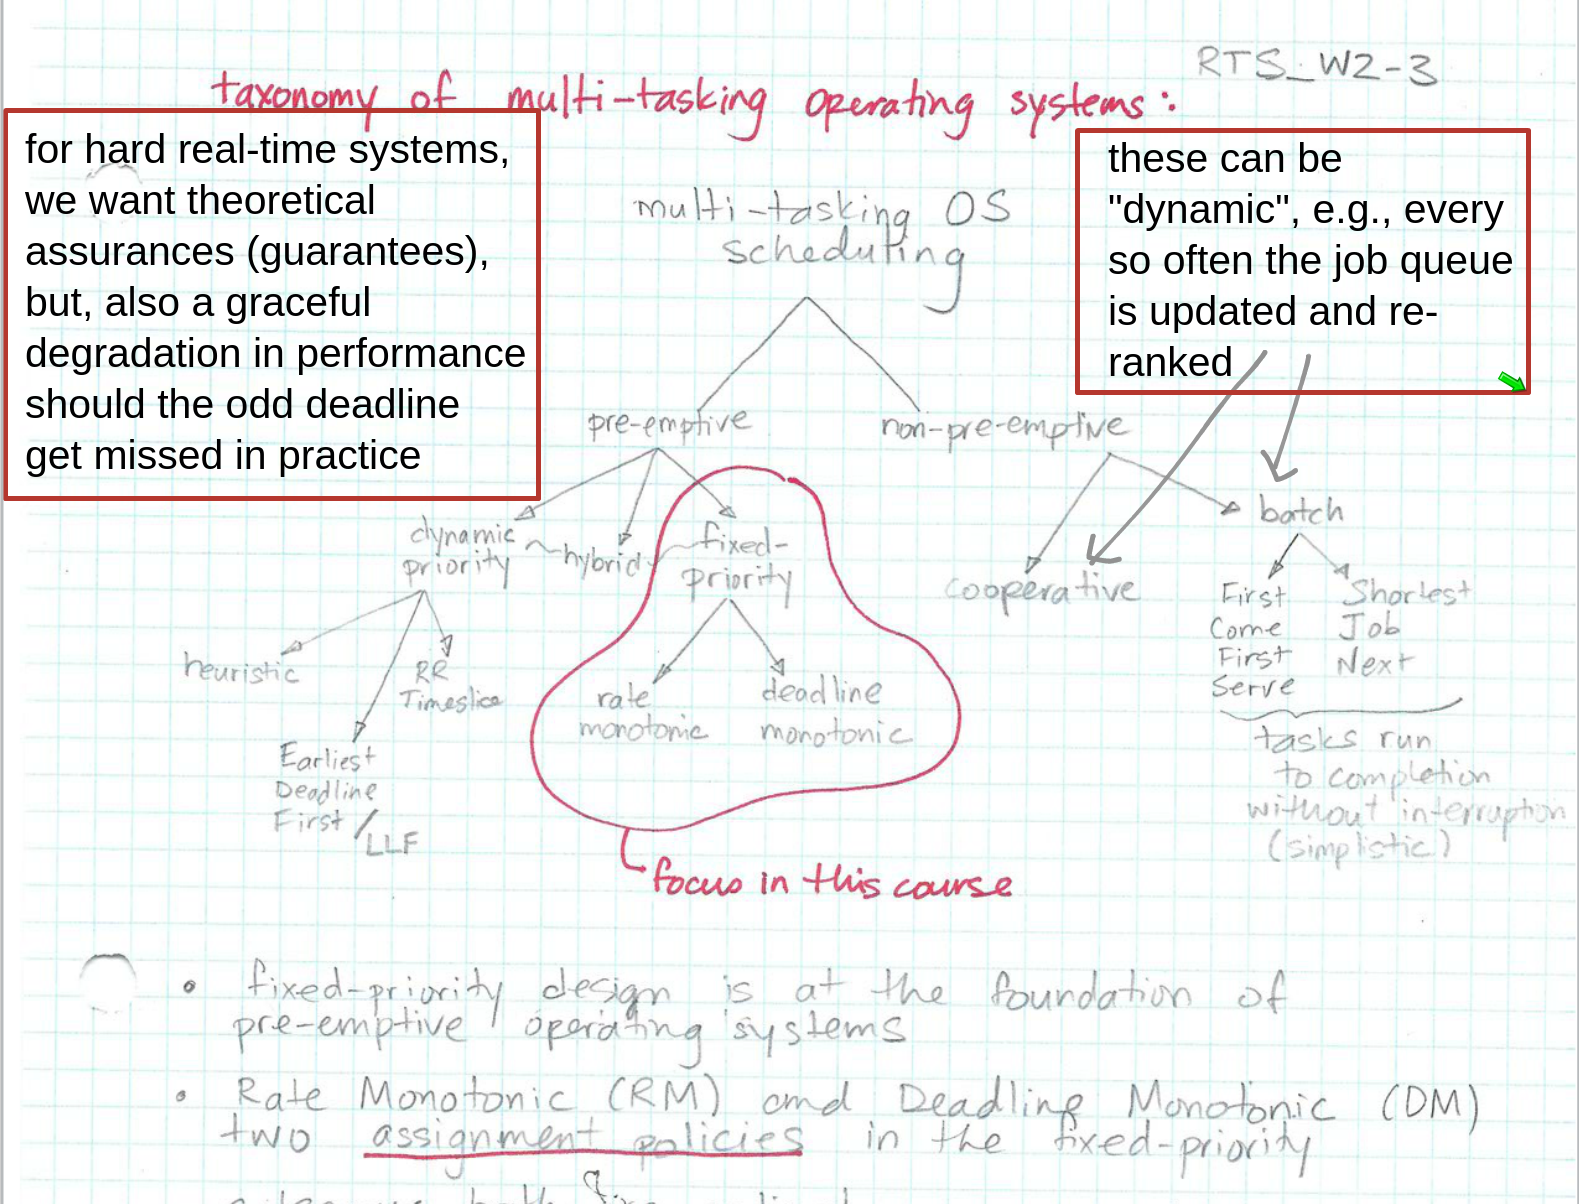 RTS_W2-3
taxonomy of multi-tasking operating systems:
for hard real-time systems,
we want theoretical
assurances (guarantees),
but, also a graceful
degradation in performance
should the odd deadline
get missed in practice
these can be
"dynamic", e.g., every
so often the job queue
is updated and re-
ranked
multi-tasking OS
scheduling
pre-emptive
non-pre-emptive
dynamic
priority
hybrid
fixed-
priority
cooperative
batch
heuristic
RR
Timeslice
Earliest
Deadline
First/LLF
rate
monotonic
deadline
monotonic
First
Come
First
Serve
Shortest
Job
Next
tasks run
to completion
without interruption
(simplistic)
focus in this course
• fixed-priority design is at the foundation of
pre-emptive operating systems
• Rate Monotonic (RM) and Deadline Monotonic (DM)
two assignment policies in the fixed-priority